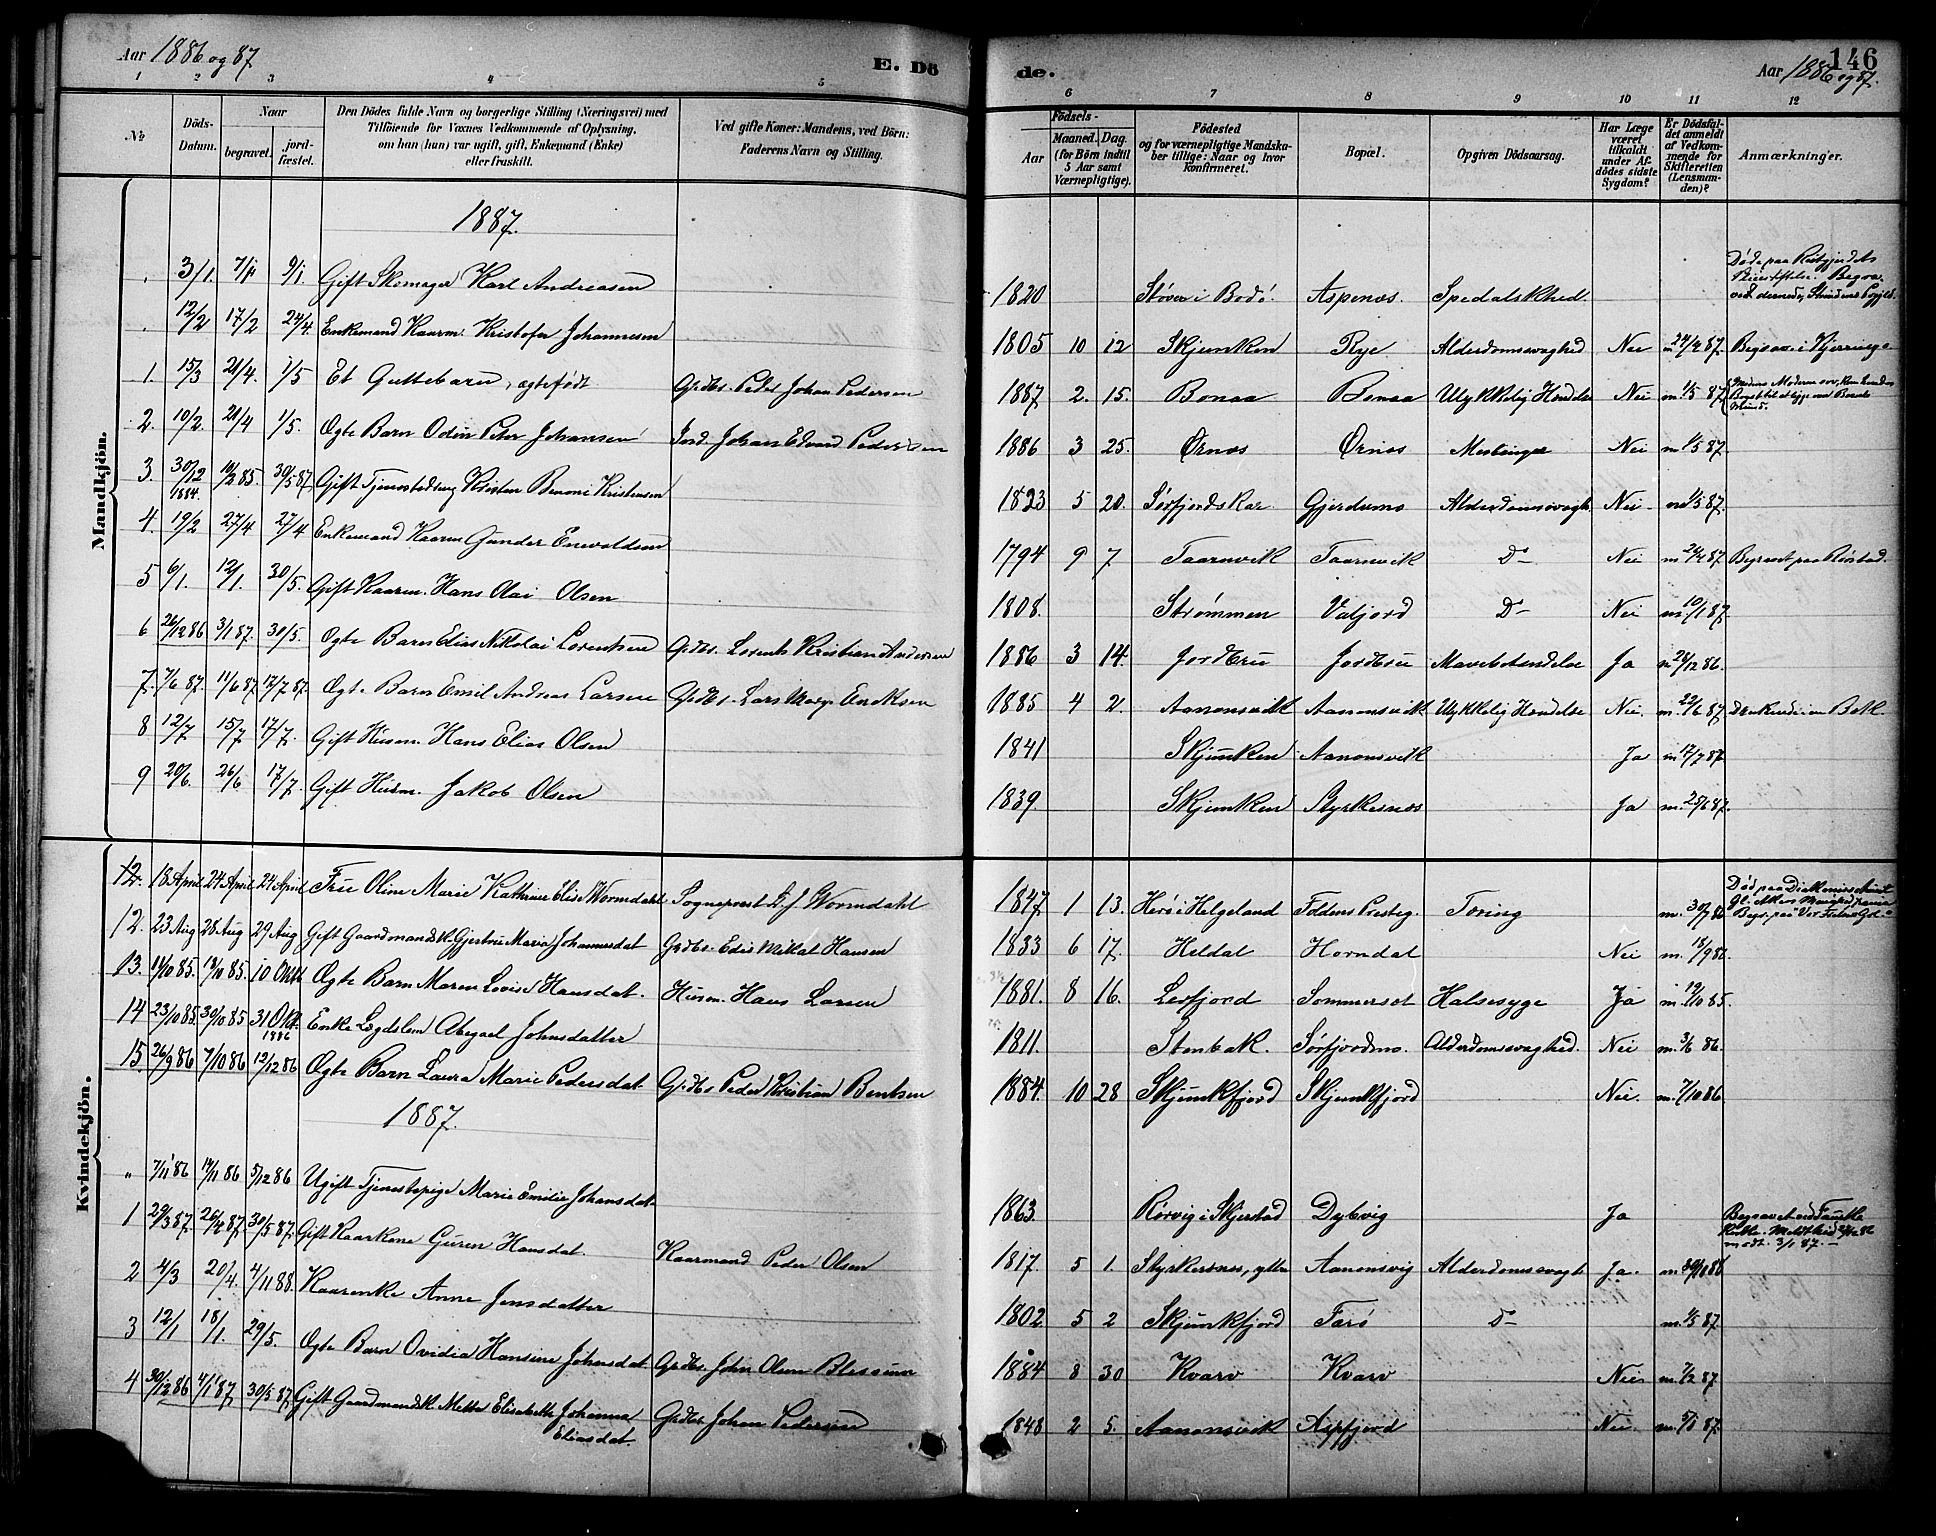 Aar 1886 og 87.
E. Dö
de.
Aar 1886 og 87.
146
1 2 3 4 5 6 7 8 9 10 11 12
No
Döds-Datum.
Naar
begravet.
jord-fæstet.
Den Dödes fulde Navn og borgerlige Stilling (Næringsvei) med
Tilföiende for Voxnes Vedkommende af Oplysning,
om han (hun) var ugift, gift, Enkemand (Enke)
eller fraskilt.
Ved gifte Koner: Mandens, ved Börn:
Faderens Navn og Stilling.
Födsels-
Aar
Maaned. Dag.
(for Börn indtil
5 Aar samt
Værnepligtige).
Födested
og for værnepligtige Mandska-
ber tillige: Naar og hvor
Konfirmeret.
Bopæl.
Opgiven Dödsaarsag.
Har Læge
været
tilkaldt
under Af-
dödes sidste
Sygdom?
Er Dödsfal-
det anmeldt
af Vedkom-
mende for
Skifteretten
(Lensman-
den)?
Anmærkninger.
Mandkjön.
1887.
3/1. 9/1 Gift Skomager Karl Andreasen 1820 Støver i Bodö. Aspenæs. Spedalskhed.
12/2 17/2 24/4. Enkemand Kaarm. Kristofer Johannesen 1805 10 12 Skjunken Rye. Alderdomssvaghed Nei
1. 15/3 21/4. 1/5 Et Guttebarn, ægtefødt Grdbr. Peder Johan Pedersen 1887 2. 15. Bonaa Bonaa Ulykkelig Hendelse Nei m. 1/5 87
2. 10/2. 21/4 1/5. Ægte Barn Odin Peter Johansen Jord. Johan Edvard Pedersen 1886 3 25. Ørnæs Ørnæs Meslinger Nei m. 1/5 87.
3. 30/12 1884. 30/5 87 Gift Kristen Benoni Kristensen 1823 5 20. Gjerdums Alderdomssvagh. Nei
4. 19/2 27/4 27/4 Enkemand Kaarm Gunder Enevoldsen 1794 9 7 Taarnvik Taarnvik D- Nei Begravet paa Røstad.
5 6/1. 12/1. 30/5. Gift Kaarm. Hans Olai Olsen 1808. Strømmen Valjord D- Nei m. 10/1 87.
6 26/12 86 3/1 87. 30/5. Ægte Barn Elias Nikolai Lorentsen Grdbr. Lorents Kristian Andersen 1886 3 14. Jordbru Jordbru Mavebetendelse Ja m. 28/12 86.
7. 7/6 87. 11/6 87 17/7 87. Ægte Barn Emil Andreas Larsen Grdbr. Lars Eriksen 1885 4 2. Aanonsvik Aanonsvik Ulykkelig Hendelse Nei. m. 22/6 87.
8 12/7 15/7 17/7. Gift Husm. Hans Elias Olsen 1841 Skjunken Aanonsvik Ja m 17/7 87
9 20/6. 26/6 17/7. Gift Husm. Jakob Olsen 1839. Skjunken Styrkesnæs Ja m. 25/6 87.
Kvindekjön.
12. 18 April 24 April 24 April Frue Oline Marie Kathrine Elise Wormdahl Sogneprest L. J. Wormdahl 1847 1 13. Herø i Helgeland Foldens Presteg. Tæring
12. 23 Aug 28 Aug 29 Aug Gift Gaardmandsk. Gjertru Maria Johannesdat Grdbr. Edis Mikal Hansen 1833 6 17. Heldal Horndal Nei m. 18/9 86.
13. 11/10 85. 18/10 85. 10 Okt Ægte Barn Maren Lovise Hansdat. Husm. Hans Larsen 1881. 8 16. Leifjord Sommerset Halsesyge Ja m. 19/10 85.
14 23/10 85. 30/10 85 31 Okt. 1886 Enke Lægdslem Abegael Johnsdatter 1811. Stenbak. Sørfjordmo. Alderdomssvaghed. Nei m. 3/6 86.
15. 26/9 86 7/10 86 12/12 86 Ægte Barn Laura Marie Pedersdat Grdbr Peder Kristian Bentsen 1884. 10 28 Skjunkfjord Skjunkfjord Nei. m. 7/10 86.
1887.
" 7/11 86 14/11 86 5/12 86 Ugift Tjenestepige Marie Emilie Johansdat 1863. Rørvig i Skjerstad Dybvig Ja
1 29/3 87. 26/4 87. 30/5 87. Gift Kaarkone Guren Hansdat. Kaarmand Peder Olsen 1817. 5 1. Styrkesnæs, ytre Aanonsvig Alderdomssvagh. Ja.
2 4/3 20/4. 4/11 88. Kaarenke Anne Jensdatter 1802 5 2 Skjunkfjord Farø D-
3 12/1 18/1. 29/5. Ægte Barn Ovidia Hansine Johnsdat. Grdbr. John Olsen 1884 8 30 Kvarv Kvarv Nei m. 7/2 87
4 30/12 86 4/1 87 30/5 87. Gift Gaardmandsk. Mette Elisabeth Johanna Eliasdat. Grdbr Johan Pedersen 1848 2 5. Aanonsvik Aspfjord Nei